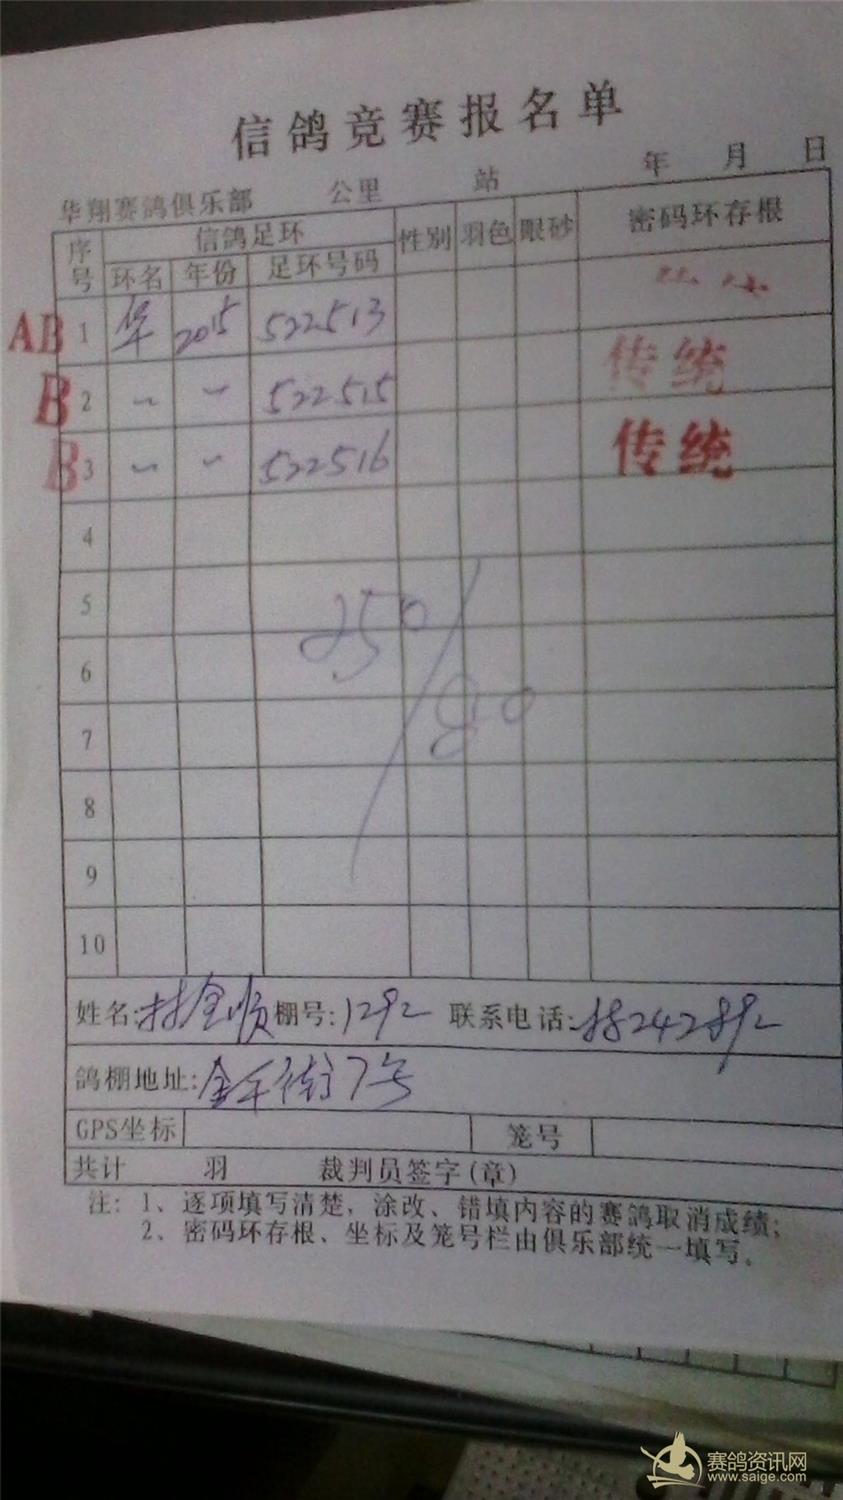 信鸽竞赛报名单
华翔赛鸽俱乐部 公里 站 年 月 日
序号 信鸽足环 性别 羽色 眼砂 密码环存根
环名 年份 足环号码
AB 1 华 2015 522513
B 2 〃 〃 522515 传统
B 3 〃 〃 522516 传统
4
5
250/80
6
7
8
9
10
姓名: 林金顺 棚号: 1292 联系电话: 88242892
鸽棚地址: 金千街7号
GPS坐标 笼号
共计 羽 裁判员签字(章)
注: 1、逐项填写清楚, 涂改、错填内容的赛鸽取消成绩;
2、密码环存根、坐标及笼号栏由俱乐部统一填写。
赛鸽资讯网
www.saige.com